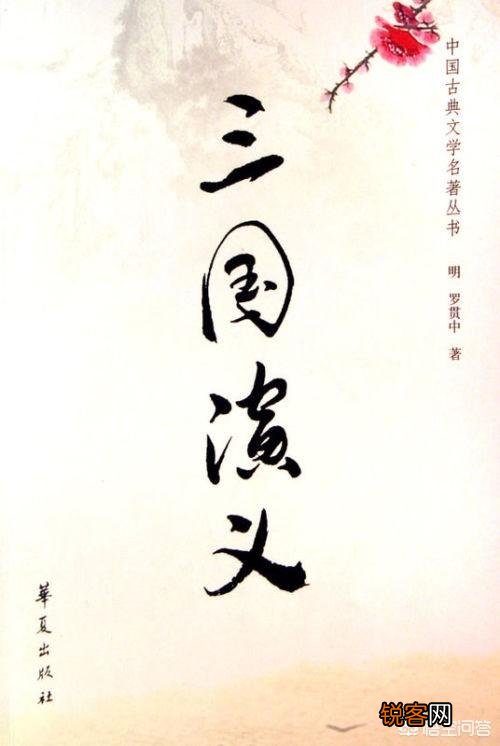 中国古典文学名著丛书
明 罗贯中 著
三国演义
華夏出版社
锐客网
悟空问答